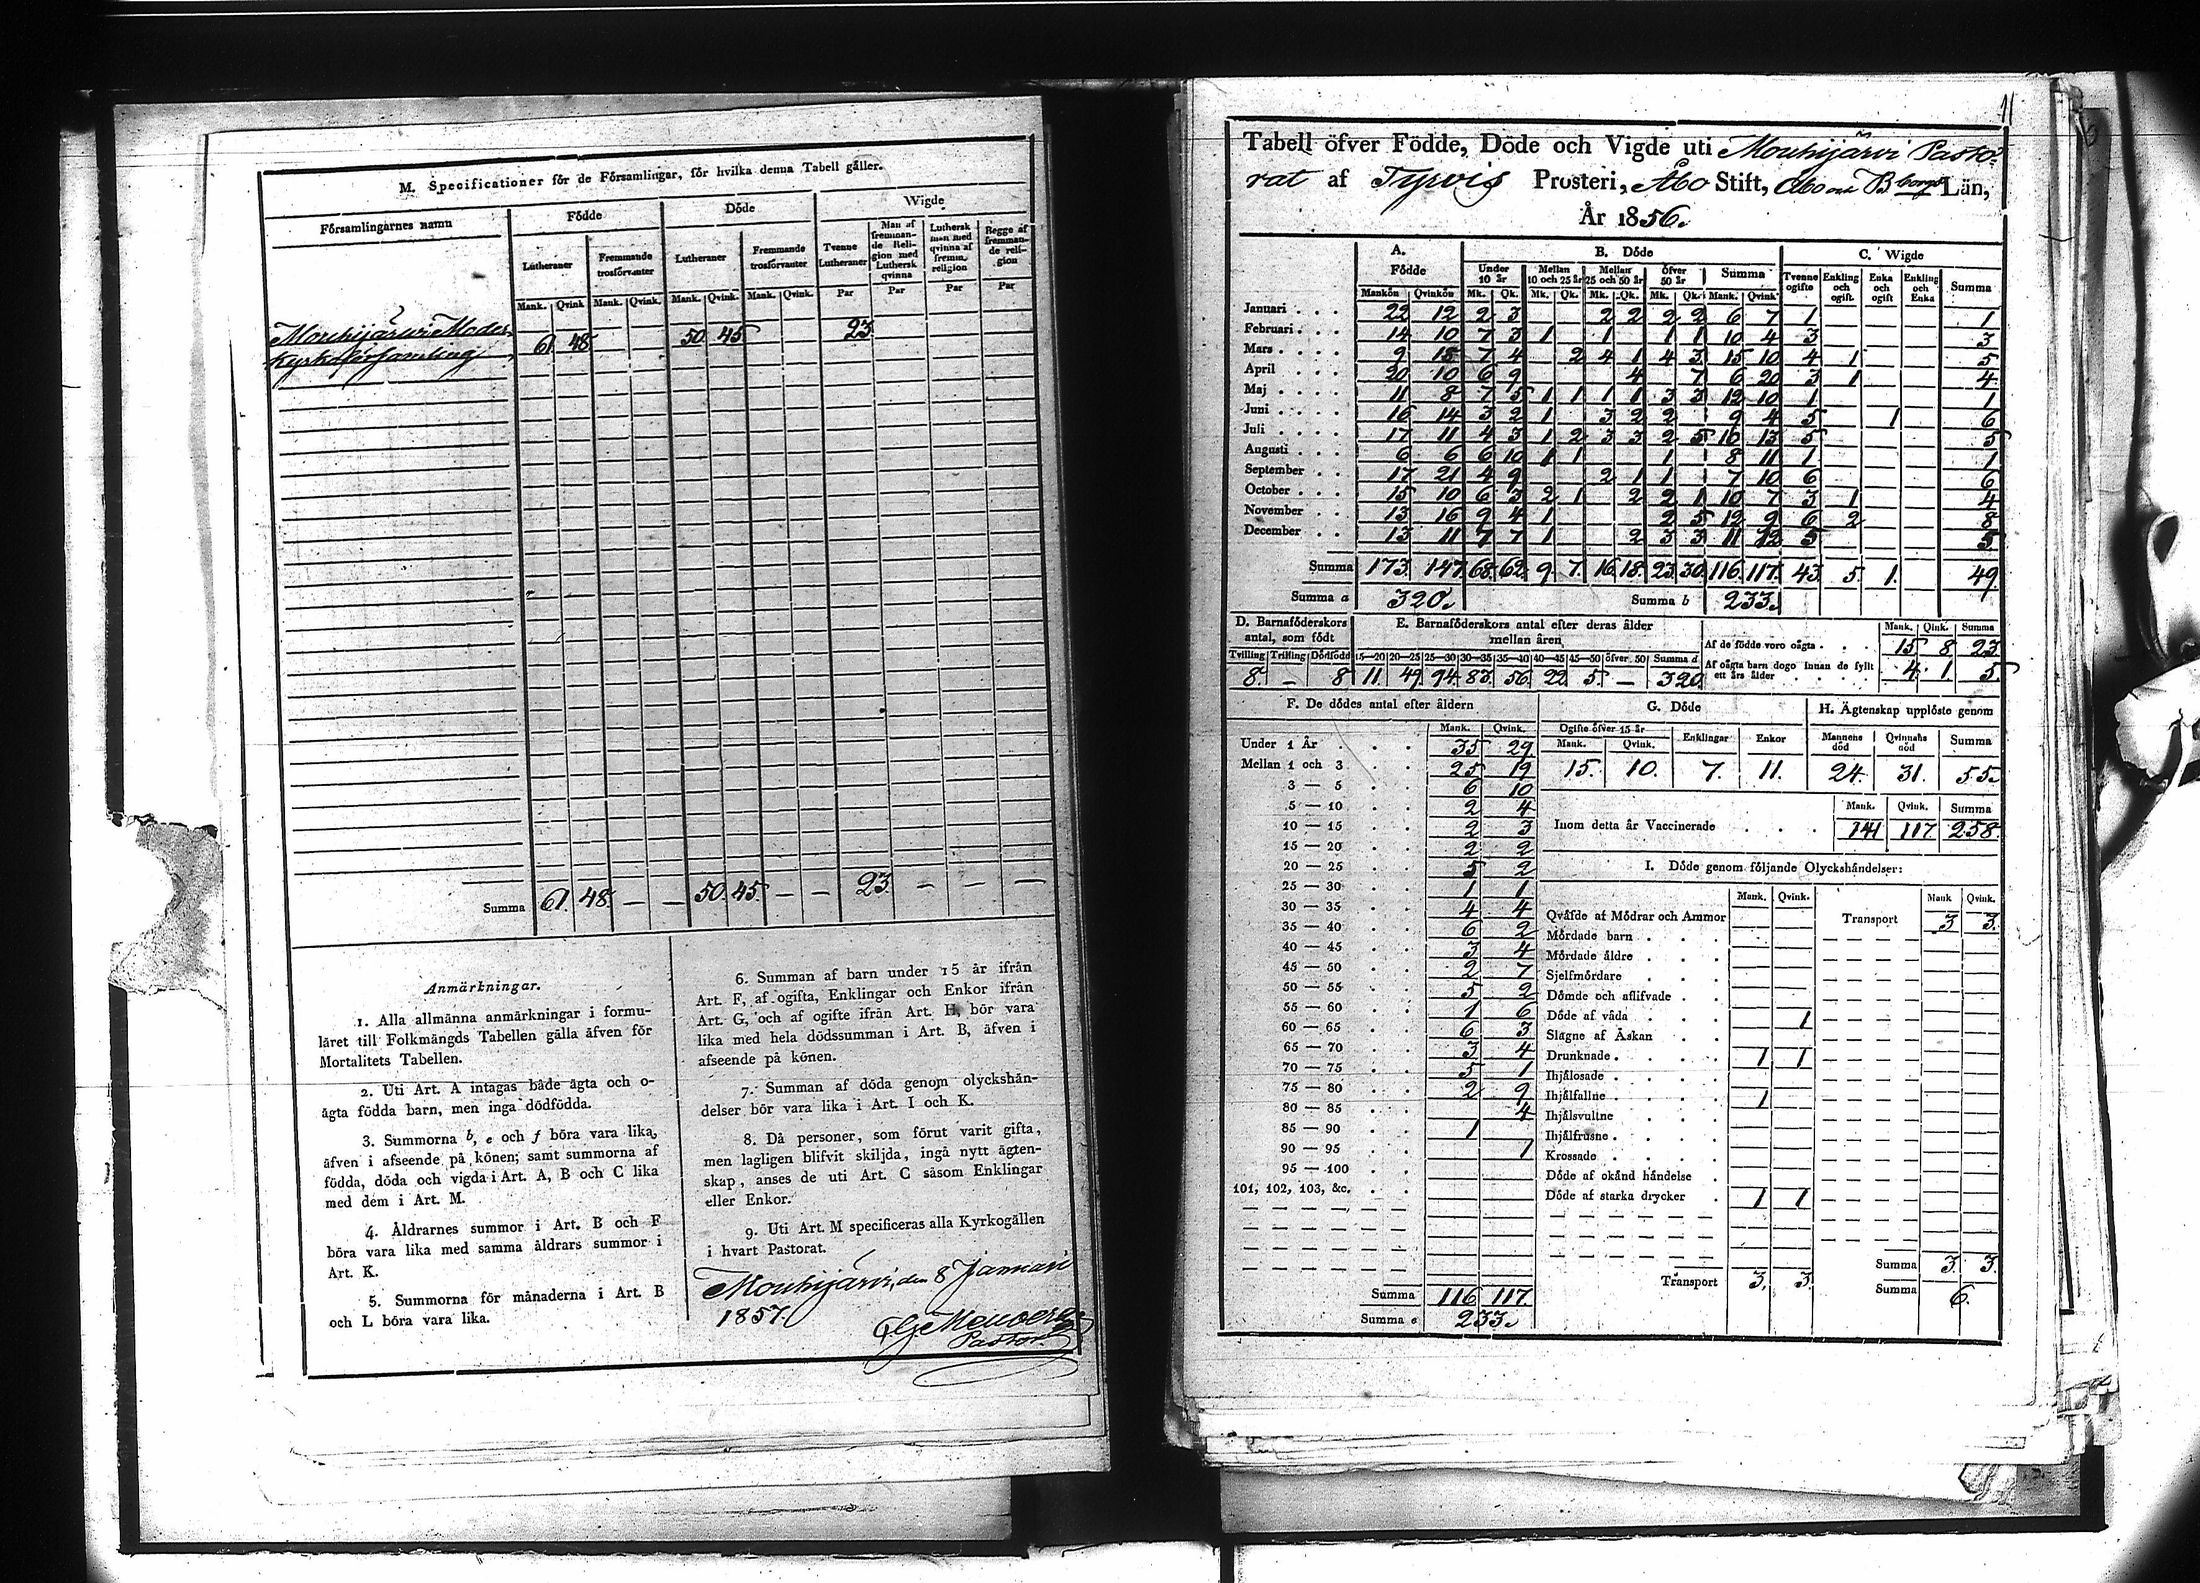 M. Specificationer för de Församlingar, för hvilka denna Tabell gäller.
Församlingarnes namn Födde Döde Wigde
Lutheraner Fremmande trosförvanter Lutheraner Fremmande trosförvanter Tvenne Lutheraner Man af fremmande Religion med Luthersk qvinna Luthersk man med qvinna af fremm. religion Begge af fremmande religion
Mank. Qvink Mank. Qvink. Mank. Qvink. Mank. Qvink. Par Par Par Par
Mouhijärwi Moder
Kyrkoförsamling 61 48 50 45 23
Summa 61. 48. — — 50. 45. — — 23. — — —
Anmärkningar.
1. Alla allmänna anmärkningar i formu-
läret till Folkmängds Tabellen gälla äfven för
Mortalitets Tabellen.
2. Uti Art. A intagas både ägta och o-
ägta födda barn, men inga dödfödda.
3. Summorna b, e och f böra vara lika,
äfven i afseende på könen; samt summorna af
födda, döda och vigda i Art. A, B och C lika
med dem i Art. M.
4. Åldrarnes summor i Art. B och F
böra vara lika med samma åldrars summor i
Art. K.
5. Summorna för månaderna i Art. B
och L böra vara lika.
6. Summan af barn under 15 år ifrån
Art. F, af ogifta, Enklingar och Enkor ifrån
Art. G, och af ogifte ifrån Art. H, bör vara
lika med hela dödssumman i Art. B, äfven i
afseende på könen.
7. Summan af döda genom olyckshän-
delser bör vara lika i Art. I och K.
8. Då personer, som förut varit gifta,
men lagligen blifvit skiljda, ingå nytt ägten-
skap, anses de uti Art. C såsom Enklingar
eller Enkor.
9. Uti Art. M specificeras alla Kyrkogällen
i hvart Pastorat.
Mouhijärvi, den 8 Januari
1857.
Pastor.
11
Tabell öfver Födde, Döde och Vigde uti Mouhijärvi Pasto-
rat af Tyrvis Prosteri, Åbo Stift, Åbo och Bborgs Län,
År 1856.
A. Födde B. Döde C. Wigde
Under 10 år Mellan 10 och 25 år Mellan 25 och 50 år Öfver 50 år Summa Tvenne ogifte Enkling och ogift. Enka och ogift Enkling och Enka Summa
Mankön Qvinkön Mk. Qk. Mk. Qk. Mk. Qk. Mk. Qk. Mank. Qvink.
Januari 22 12 2 3 2 2 2 2 6 7 1 1
Februari 14 10 7 3 1 1 1 1 10 4 3 3
Mars 9 18 7 4 2 4 1 4 3 15 10 4 1 5
April 20 10 6 9 4 7 6 20 3 1 4
Maj 11 8 7 5 1 1 1 1 3 3 12 10 1 1
Juni 16 14 3 2 1 3 2 2 9 4 5 1 6
Juli 17 11 4 3 1 2 3 3 2 5 10 13 5 5
Augusti 6 6 6 10 1 1 1 8 11 1 1
September 17 21 4 9 2 1 1 7 10 6 6
October 15 10 6 3 2 1 2 2 1 10 7 3 1 4
November 13 16 9 4 1 2 5 12 9 6 2 8
December 13 11 7 7 1 2 3 3 11 12 5 5
Summa 173. 147. 68. 62. 9 7. 16. 18. 23. 30. 116. 117. 43. 5. 1. 49.
Summa a 320. Summa b 233.
D. Barnaföderskors antal, som födt
Tvilling Trilling Dödfödd
8. — 8
E. Barnaföderskors antal efter deras ålder mellan åren
15—20 20—25 25—30 30—35 35—40 40—45 45—50 öfver 50 Summa d
11. 49. 94. 83. 56. 22. 5. — 320.
Mank. Qink. Summa
Af de födde voro oägta 15 8 23
Af oägta barn dogo innan de fyllt ett års ålder 4. 1. 5.
F. De dödes antal efter åldern
Mank. Qvink.
Under 1 År 35 29
Mellan 1 och 3 25 19
3 — 5 6 10
5 — 10 2 4
10 — 15 2 3
15 — 20 2 2
20 — 25 5 2
25 — 30 1 1
30 — 35 4 4
35 — 40 6 2
40 — 45 3 4
45 — 50 2 7
50 — 55 5 2
55 — 60 1 6
60 — 65 6 3
65 — 70 3 4
70 — 75 5 1
75 — 80 2 9
80 — 85 4
85 — 90 1
90 — 95 1
95 — 100
101, 102, 103, &c.
Summa 116 117.
Summa e 233.
G. Döde
Ogifte öfver 15 år Enklingar Enkor
Mank. Qvink.
15. 10. 7. 11.
H. Ägtenskap upplöste genom
Mannens död Qvinnans död Summa
24. 31. 55.
Mank. Qvink. Summa
Inom detta år Vaccinerade 141 117 258
I. Döde genom följande Olyckshändelser:
Mank. Qvink. Mank Qvink.
Qväfde af Mödrar och Ammor Transport 3 3.
Mördade barn
Mördade äldre
Sjelfmördare
Dömde och aflifvade
Döde af våda 1
Slagne af Åskan
Drunknade 1 1
Ihjälosade
Ihjälfallne 1
Ihjälsvultne
Ihjälfrusne
Krossade
Döde af okänd händelse
Döde af starka drycker 1 1
Summa 3. 3.
Transport 3, 3. Summa 6.